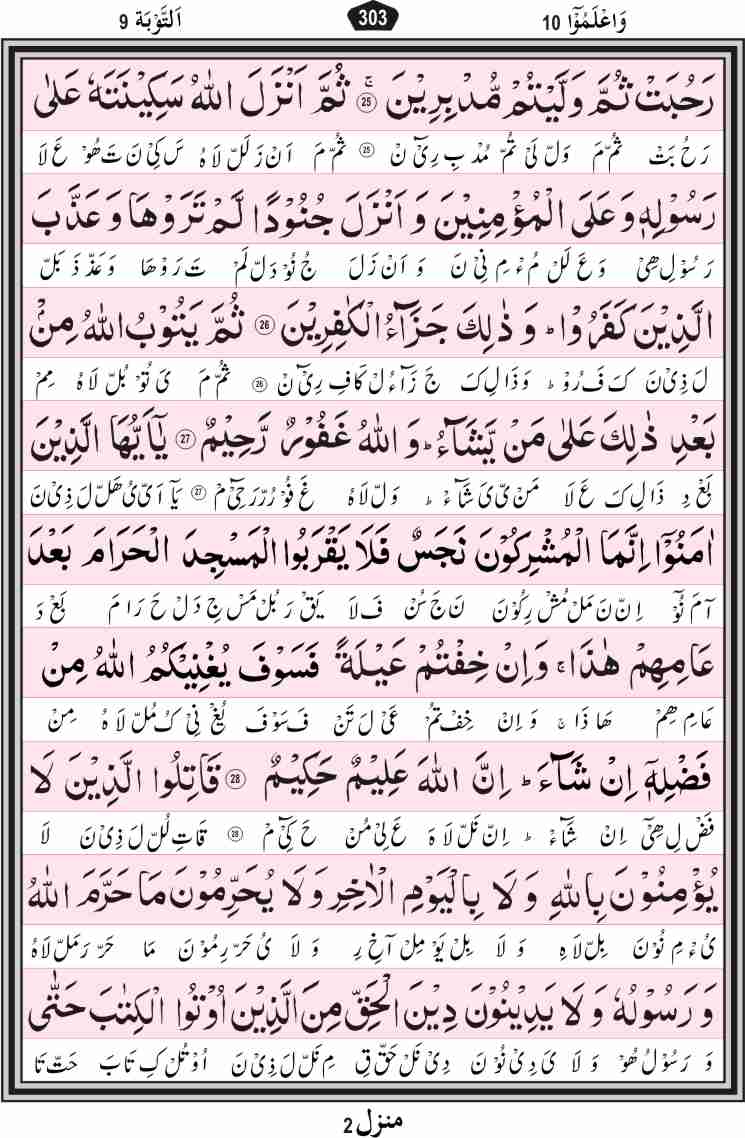 وَاعْلَمُوْۤا 10 303 اَلتَّوْبَة 9
رَحُبَتْ ثُمَّ وَلَّيْتُمْ مُّدْبِرِيْنَ ۚ ﴿25﴾ ثُمَّ اَنْزَلَ اللّٰهُ سَكِيْنَتَهٗ عَلٰى
رَ حُ بَتْ ثُمْ مَ وَلْ لَىْ تُمْ مُدْ بِ رِىْٓ نْ ﴿25﴾ ثُمْ مَ اَنْ زَ لَلْ لَا هُ سَ كِىْ نَ تَ هُوْ عَ لَا
رَسُوْلِهٖ وَعَلَى الْمُؤْمِنِيْنَ وَ اَنْزَلَ جُنُوْدًا لَّمْ تَرَوْهَا وَ عَذَّبَ
رَ سُوْ لِ هِىْ وَ عَ لَلْ مُ ءْ مِ نِىْ نَ وَ اَنْ زَ لَ جُ نُوْ دَلْ لَمْ تَ رَ وْ هَا وَ عَذْ ذَ بَلْ
الَّذِيْنَ كَفَرُوْا ؕ وَ ذٰلِكَ جَزَآءُ الْكٰفِرِيْنَ ﴿26﴾ ثُمَّ يَتُوْبُ اللّٰهُ مِنْۢ
لَ ذِىْ نَ كَ فَ رُوْ ؕ وَ ذَا لِ كَ جَ زَآ ءُ لْ كَا فِ رِىْٓ نْ ﴿26﴾ ثُمْ مَ ىَ تُوْ بُلْ لَا هُ مِمْ
بَعْدِ ذٰلِكَ عَلٰى مَنْ يَّشَآءُ ؕ وَ اللّٰهُ غَفُوْرٌ رَّحِيْمٌ ﴿27﴾ يٰۤاَيُّهَا الَّذِيْنَ
بَعْ دِ ذَا لِ كَ عَ لَا مَنْ ىْ ىَ شَآ ءْ ؕ وَ لْ لَا هُ غَ فُوْ رُرْ رَ حِىْٓ مْ ﴿27﴾ يَآ اَىْ ىُ هَلْ لَ ذِىْ نَ
اٰمَنُوْۤا اِنَّمَا الْمُشْرِكُوْنَ نَجَسٌ فَلَا يَقْرَبُوا الْمَسْجِدَ الْحَرَامَ بَعْدَ
آ مَ نُوْٓ اِنْ نَ مَلْ مُشْ رِ كُوْنَ نَ جَ سُنْ فَ لَا يَقْ رَ بُلْ مَسْ جِ دَ لْ حَ رَا مَ بَعْ دَ
عَامِهِمْ هٰذَا ۚ وَاِنْ خِفْتُمْ عَيْلَةً فَسَوْفَ يُغْنِيْكُمُ اللّٰهُ مِنْ
عَا مِ هِمْ هَا ذَا ۚ وَ اِنْ خِفْ تُمْ عَىْ لَ تَنْ فَ سَوْ فَ يُغْ نِىْ كُ مُلْ لَا هُ مِنْ
فَضْلِهٖۤ اِنْ شَآءَ ؕ اِنَّ اللّٰهَ عَلِيْمٌ حَكِيْمٌ ﴿28﴾ قَاتِلُوا الَّذِيْنَ لَا
فَضْ لِ هِىْٓ اِنْ شَآ ءْ ؕ اِنْ نَلْ لَا هَ عَ لِىْ مُنْ حَ كِىْٓ مْ ﴿28﴾ قَا تِ لُلْ لَ ذِىْ نَ لَا
يُؤْمِنُوْنَ بِاللّٰهِ وَ لَا بِالْيَوْمِ الْاٰخِرِ وَ لَا يُحَرِّمُوْنَ مَا حَرَّمَ اللّٰهُ
ىُ ءْ مِ نُوْ نَ بِلْ لَا هِ وَ لَا بِلْ يَوْ مِ لْ آ خِ رِ وَ لَا ىُ حَرْ رِ مُوْ نَ مَا حَرْ رَ مَلْ لَا هُ
وَ رَسُوْلُهٗ وَ لَا يَدِيْنُوْنَ دِيْنَ الْحَقِّ مِنَ الَّذِيْنَ اُوْتُوا الْكِتٰبَ حَتّٰى
وَ رَ سُوْ لُ هُوْ وَ لَا ىَ دِىْ نُوْ نَ دِىْ نَلْ حَقْ قِ مِ نَلْ لَ ذِىْ نَ اُوْ تُلْ كِ تَا بَ حَتْ تَا
منزل 2